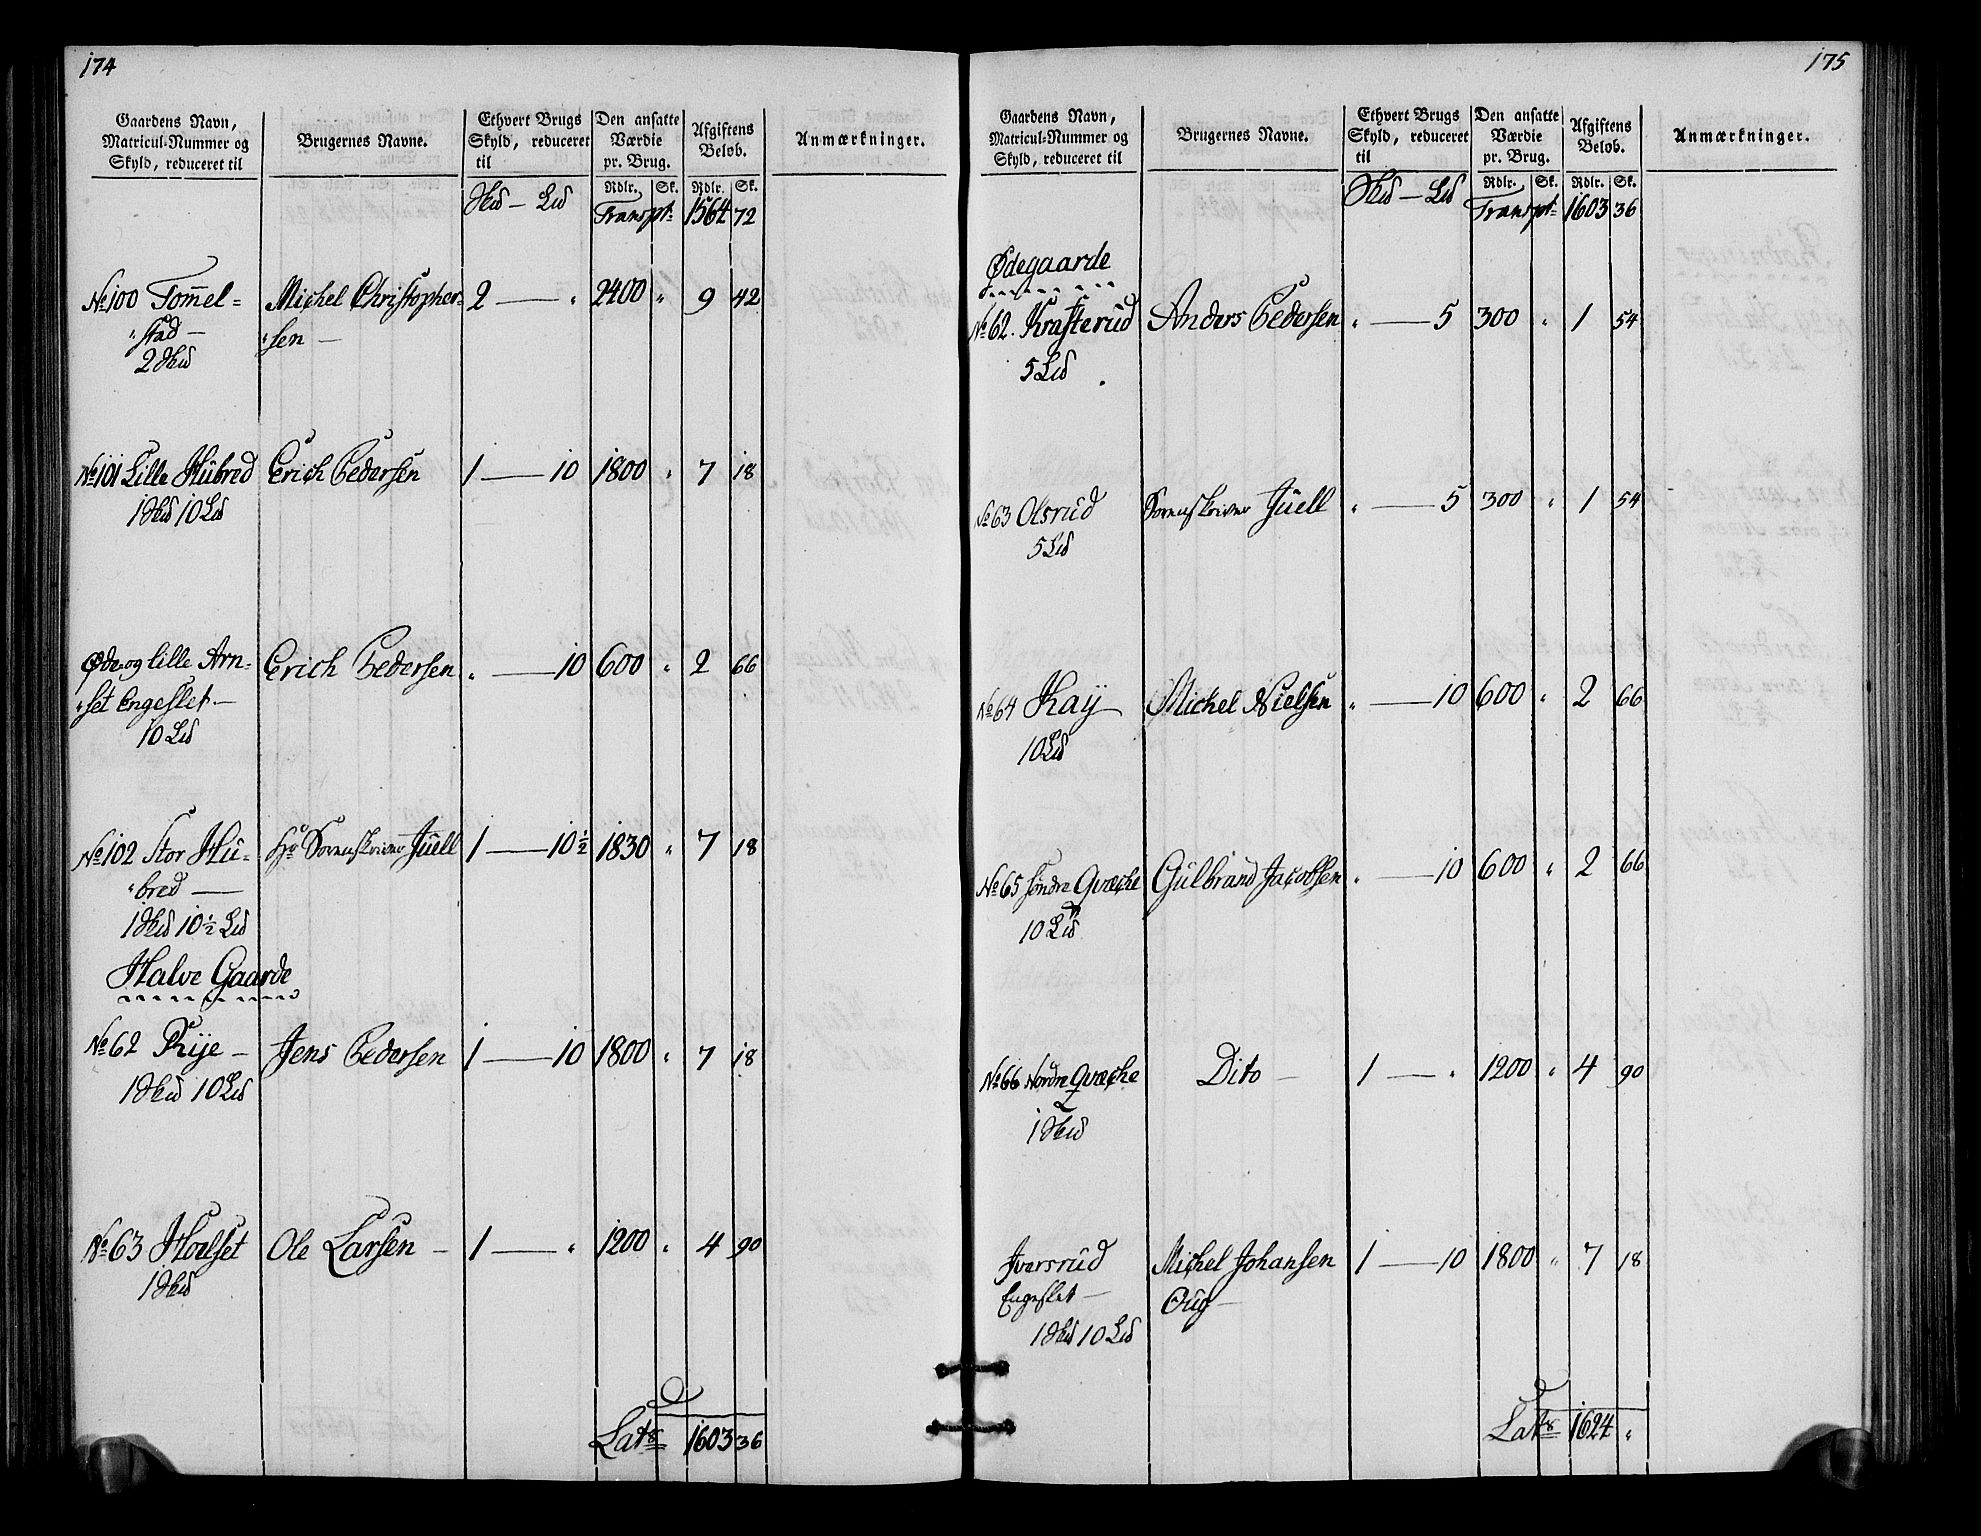 174
Gaardens Navn, Matricul-Nummer og Skyld, reduceret til | Brugernes Navne. | Ethvert Brugs Skyld, reduceret til | Den ansatte Værdie pr. Brug. | Afgiftens Beløb. | Anmærkninger.
Hud — Lid | Rdlr. | Sk. | Rdlr. | Sk.
Transpt: 1564 72
No 100 Tom̄el= Michel Christopher= 2 — " 2400 " 9 42
"stad — "sen —
2 Hud
No 101 Lille Hübred Erich Pedersen 1 — 10 1800 " 7 18
1 Hud 10 Lid
Øde og lille Arn= Erich Pedersen " — 10 600 " 2 66
"set Engeslet —
10 Lid
No 102 Stor Hü= Hr Sorenskriver Jüell 1 — 10½ 1830 " 7 18
"bred —
1 Hud 10½ Lid
Halve Gaarde
No 62 Rije — Jens Pedersen 1 — 10 1800 " 7 18
1 Hud 10 Lid
No 63 Hoelset Ole Larsen — 1 — " 1200 " 4 90
1 Hud
Lats 1603 36
175
Gaardens Navn, Matricul-Nummer og Skyld, reduceret til | Brugernes Navne. | Ethvert Brugs Skyld, reduceret til | Den ansatte Værdie pr. Brug. | Afgiftens Beløb. | Anmærkninger.
Hud — Lid | Rdlr. | Sk. | Rdlr. | Sk.
Transpt: 1603 36
Ødegaarde
No 62. Krafterüd Anders Pedersen " — 5 300 " 1 54
5 Lid
No 63 Olsrüd Sorenskriver Jüell " — 5 300 " 1 54
5 Lid
No 64 Kaÿ Michel Nielsen " — 10 600 " 2 66
10 Lid
No 65 Søndre Qvæche Gülbrand Jacobsen " — 10 600 " 2 66
10 Lid
No 66 Nordre Qvæche Dito — 1 — " 1200 " 4 90
1 Hud
Iversrüd Michel Johansen 1 — 10 1800 " 7 18
Engeslet — Oug —
1 Hud 10 Lid
Lats 1624 "